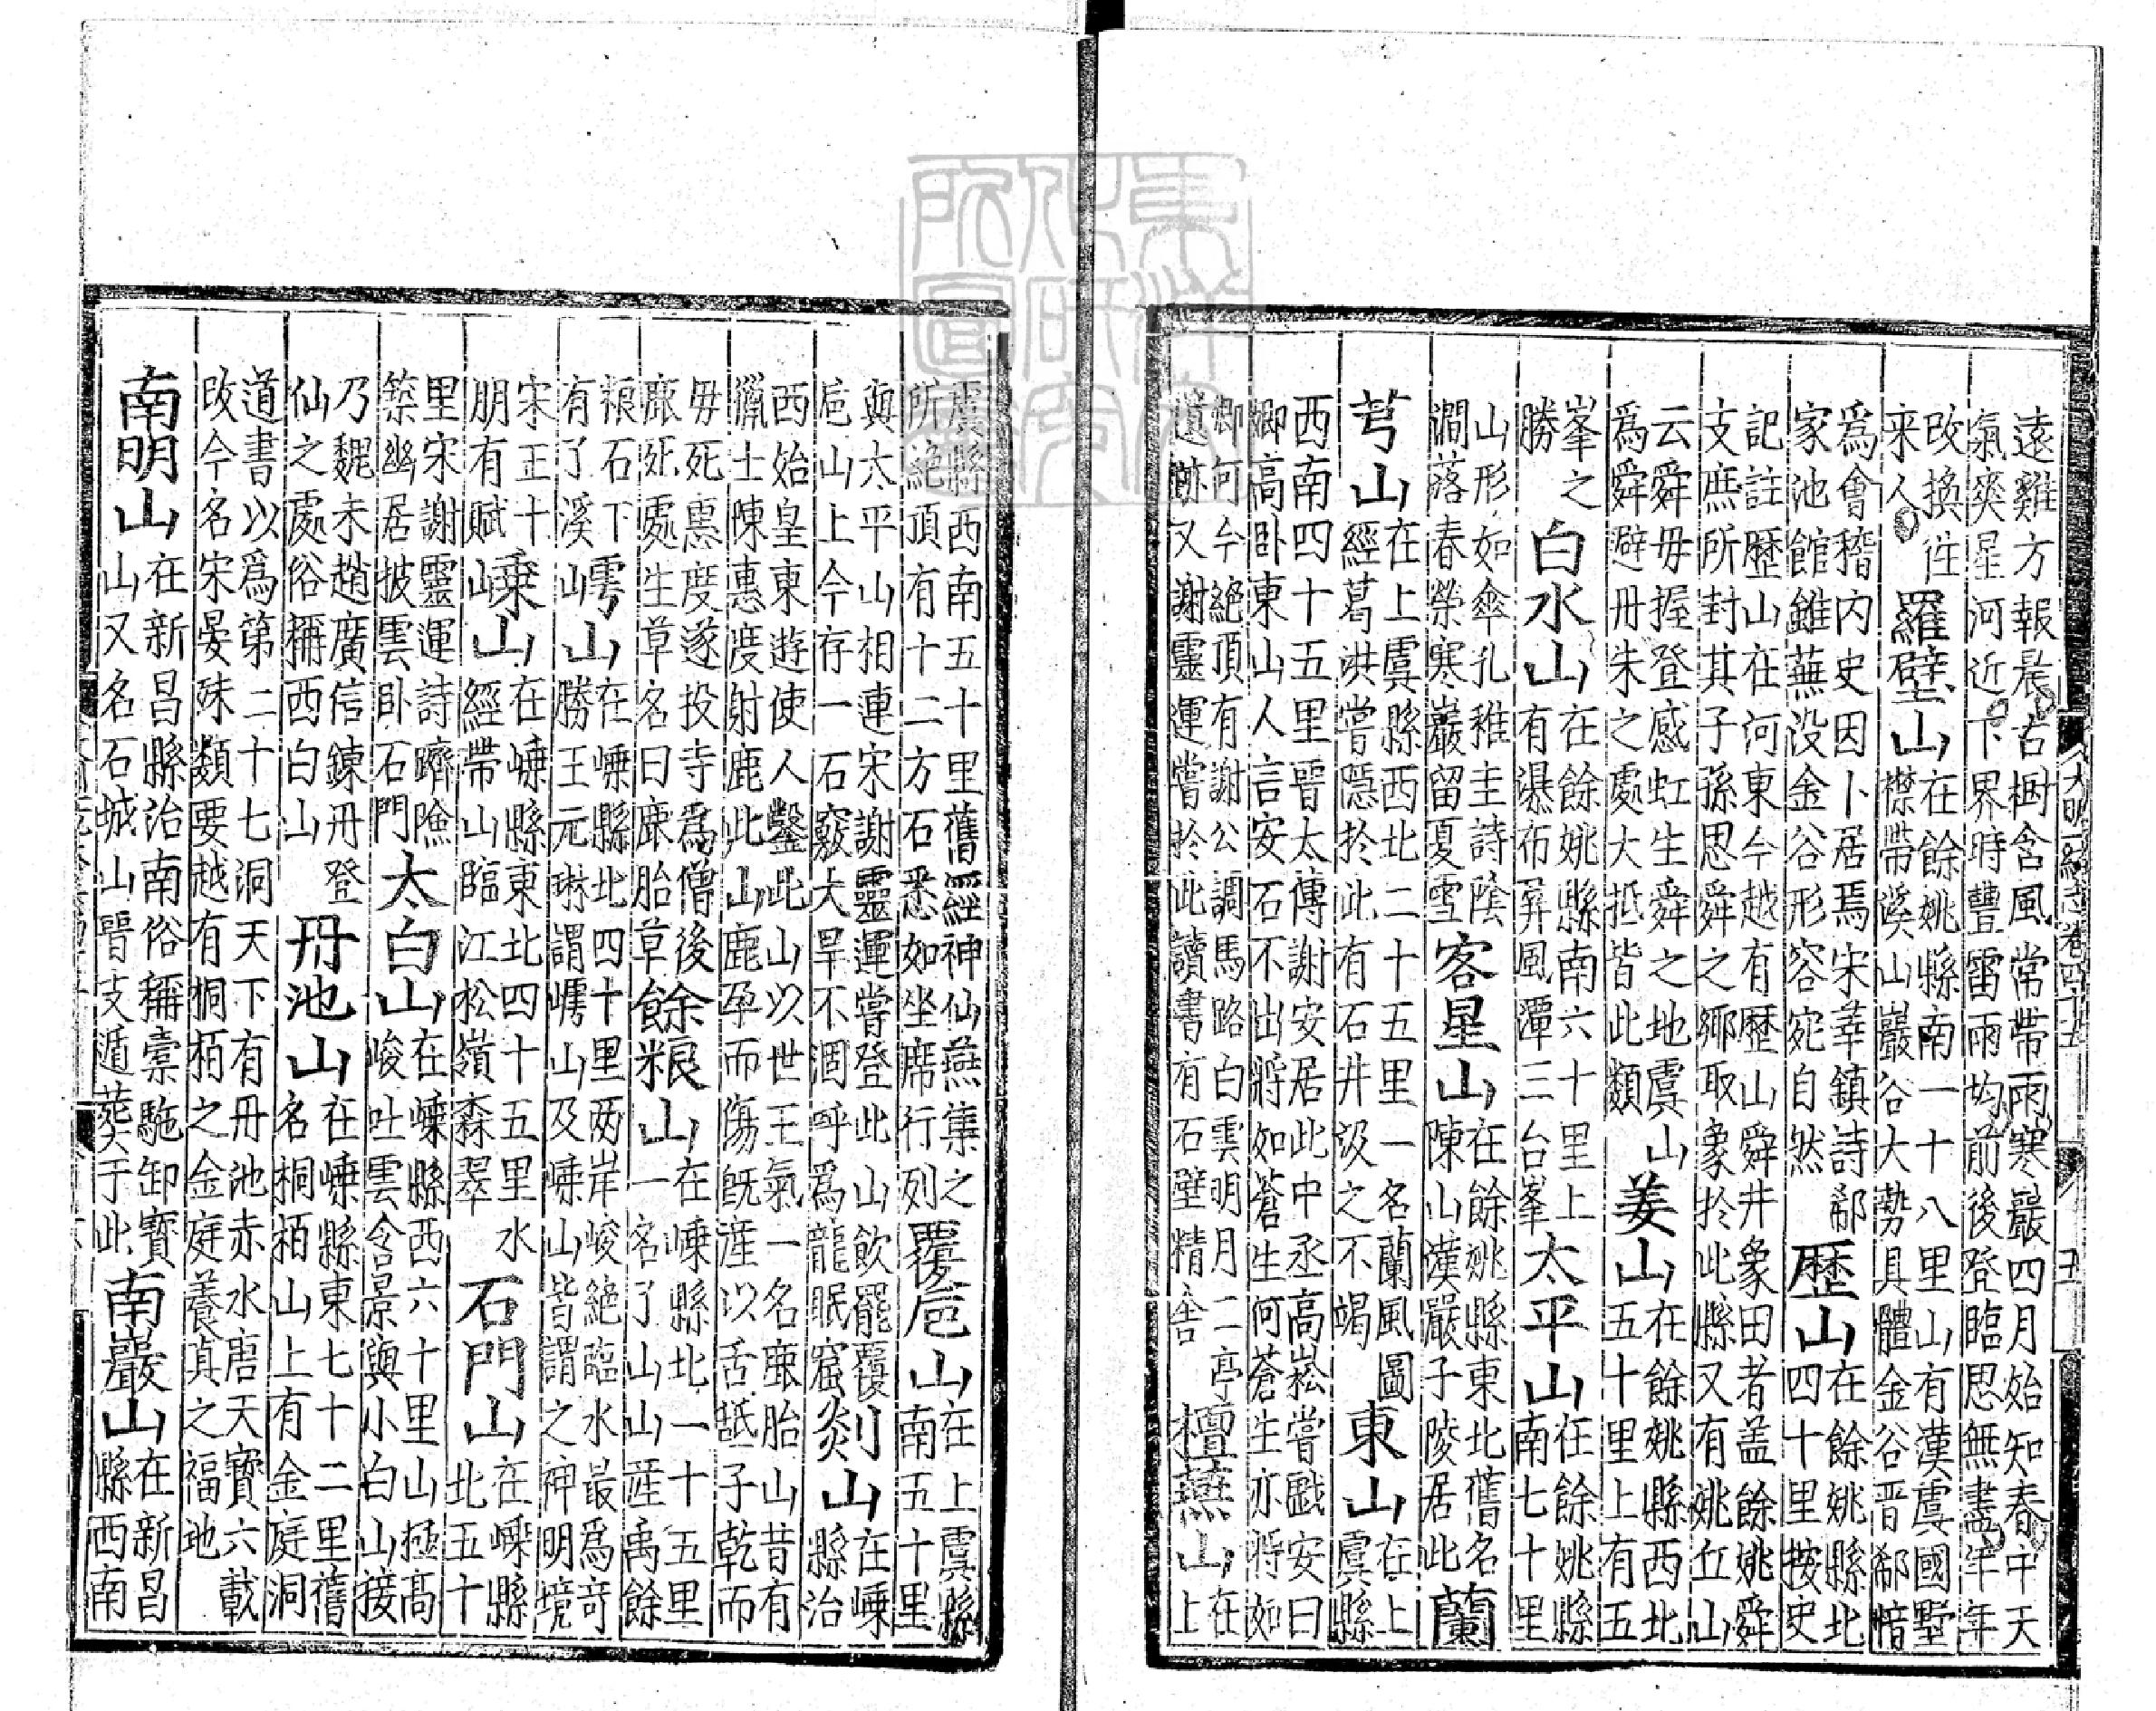 遠雞方報晨古樹含風常帶雨寒巖四月始知春中天
氣爽星河近下界時豐雷雨均前後登臨思無盡年年
改換往來人羅壁山在餘姚縣南一十八里山有漢虞國墅襟帶溪山巖谷大勢具體金谷晉郗愔
爲會稽内史因卜居焉宋莘鎮詩郗家池館雖蕪没金谷形容宛自然歷山在餘姚縣北四十里按史
記註歷山在河東今越有歷山舜井象田者盖餘姚舜
支庶所封其子孫思舜之鄉取象於此縣又有姚丘山
云舜母握登感虹生舜之地虞山爲舜避丹朱之處大抵皆此類姜山在餘姚縣西北五十里上有五
峯之勝白水山在餘姚縣南六十里上有瀑布屏風潭三台峯太平山在餘姚縣南七十里
山形如傘孔稚圭詩陰澗落春榮寒巖留夏雪客星山在餘姚縣東北舊名陳山漢嚴子陵居此蘭
芎山在上虞縣西北二十五里一名蘭風圖經葛洪嘗隱於此有石井汲之不竭東山在上虞縣
西南四十五里晉太傅謝安居此中丞高崧嘗戲安曰
卿高卧東山人言安石不出將如蒼生何蒼生亦將如
卿何今絶頂有謝公調馬路白雲明月二亭遺跡又謝靈運嘗於此讀書有石壁精舍檀燕山在上
大明一統志卷四十五
五
虞縣西南五十里舊經神仙燕集之所絶頂有十二方石悉如坐席行列覆卮山在上虞縣南五十里
與太平山相連宋謝靈運嘗登此山飲罷覆卮山上今存一石竅大旱不涸呼爲龍眠窟剡山在嵊縣治
西始皇東遊使人鑿此山以世王氣一名鹿胎山昔有
獵士陳惠度射鹿此山鹿孕而傷既産以舌舐子乾而
母死惠度遂投寺爲僧後鹿死處生草名曰鹿胎草餘粮山在嵊縣北一十五里一名了山山産禹餘
粮石下有了溪嶀山在嵊縣北四十里两岸峻絶臨水最爲奇勝王元琳謂嶀山及嵊山皆謂之神明境
宋王十朋有賦嵊山在嵊縣東北四十五里水經帶山臨江松嶺森翠石門山在嵊縣北五十
里宋謝靈運詩躋險築幽居披雲卧石門太白山在嵊縣西六十里山極高峻吐雲含景與小白山接
乃魏末趙廣信鍊丹登仙之處俗稱西白山丹池山在嵊縣東七十二里舊名桐栢山上有金庭洞
道書以爲第二十七洞天下有丹池赤水唐天寶六載
改今名宋晏殊類要越有桐栢之金庭養真之福地
南明山在新昌縣治南俗稱橐駞卸寶山又名石城山晉支遁葬于此南巖山在新昌縣西南